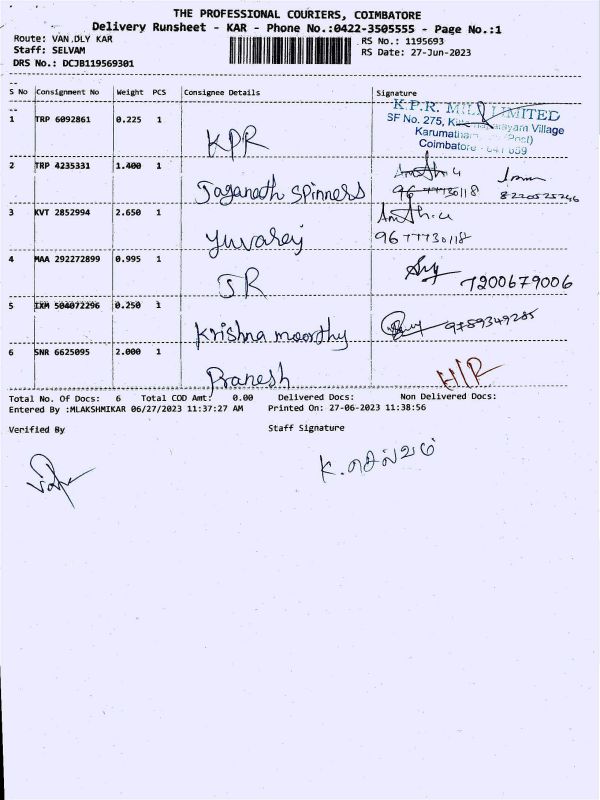 THE PROFESSIONAL COURIERS, COIMBATORE
Delivery Runsheet - KAR - Phone No.:0422-3505555 - Page No.:1
Route: VAN DLY KAR
RS No.: 1195693
Staff: SELVAM
RS Date: 27-Jun-2023
DRS No.: DCJB119569301
S No Consignment No Weight PCS Consignee Details Signature
1 TRP 6092861 0.225 1 KPR
K.P.R. MILL LIMITED
SF No. 275, Village
Karumatham (Post)
Coimbatore - 641 659
2 TRP 4235331 1.400 1 Jaganath Spinners
8220525246
3 KVT 2852994 2.650 1 Yuvaraj
96 77730118
4 MAA 292272899 0.995 1 JR 7200679006
5 IXM 504072296 0.250 1 Krishna moorthy 9789349285
6 SNR 6625095 2.000 1 Pranesh
Total No. Of Docs: 6 Total COD Amt: 0.00 Delivered Docs: Non Delivered Docs:
Entered By :MLAKSHMIKAR 06/27/2023 11:37:27 AM Printed On: 27-06-2023 11:38:56
Verified By Staff Signature
K. செல்வம்